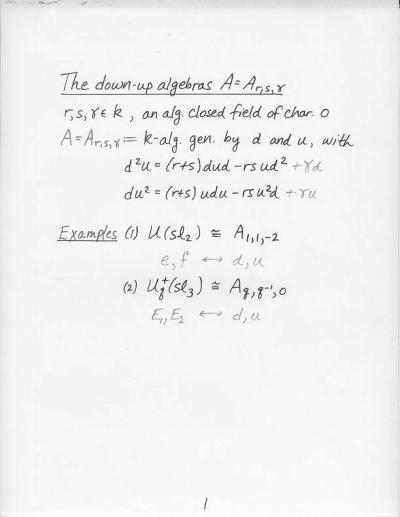 The down-up algebras A = A_{r,s,γ}
r,s,γ ∈ k, an alg. closed field of char. 0
A = A_{r,s,γ} := k-alg. gen. by d and u, with
d²u = (r+s)dud - rs ud² + γd
du² = (r+s) udu - rs u²d + γu
Examples (1) U(sl₂) ≅ A_{1,1,-2}
e,f ↔ d,u
(2) U_q⁺(sl₃) ≅ A_{q,q⁻¹,0}
E₁,E₂ ↔ d,u
1